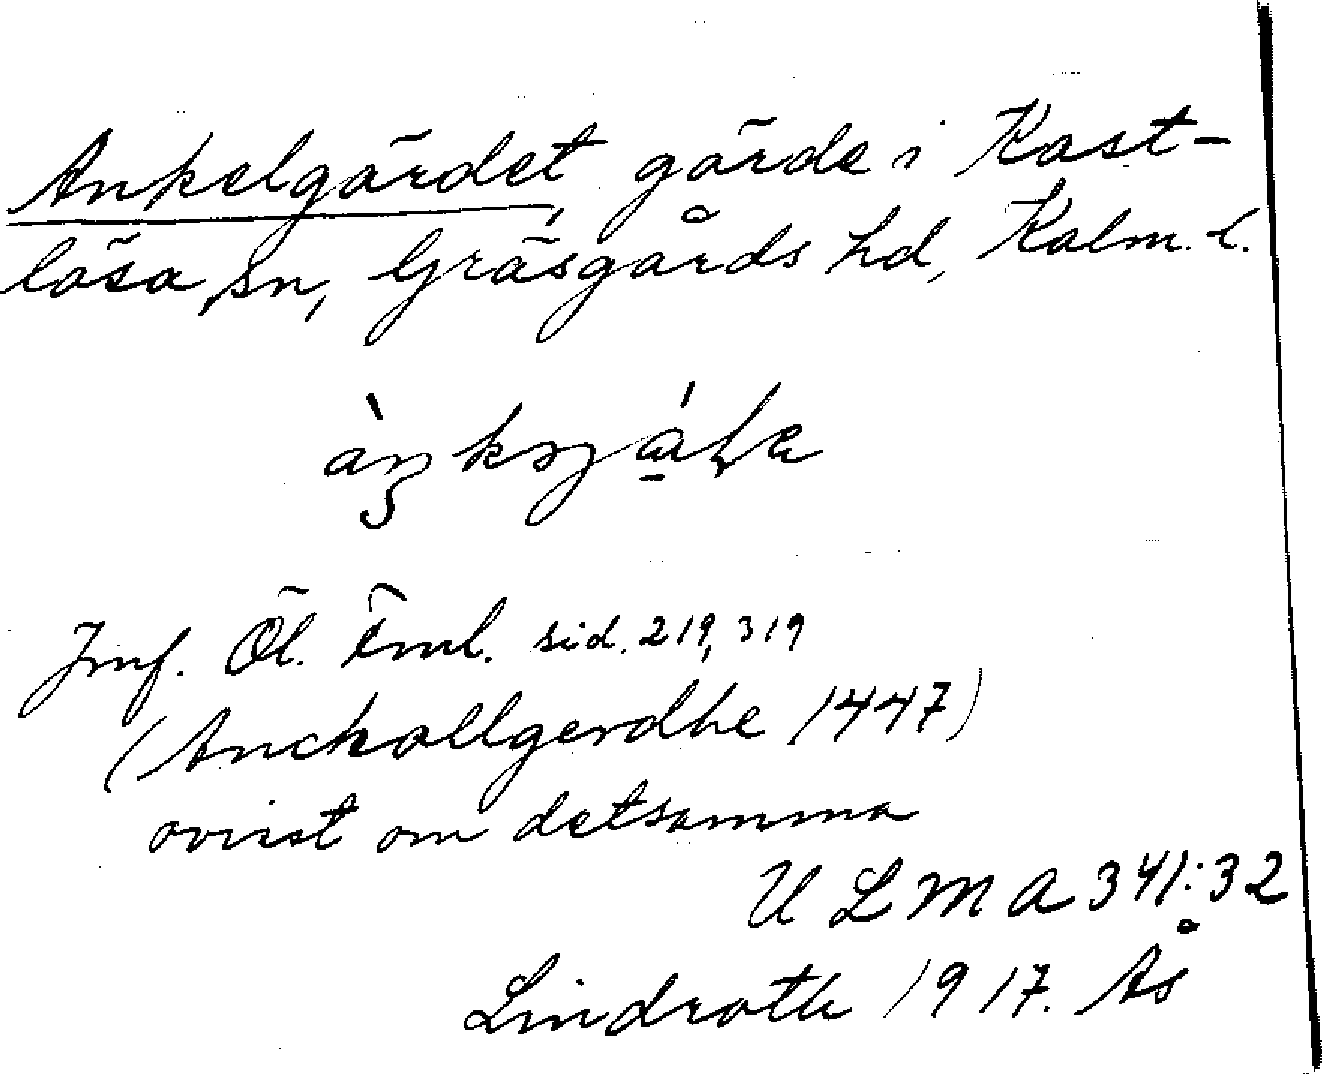 Ankelgärdet, gärde i Kast-
lösa sn, Gräsgårds hd, Kalm. l.
Jmf. Öl. Fml. sid. 219, 319
(Anckallgerdhe 1447)
ovisst om detsamma
ULMA 341:32
Lindroth 1917. Ås